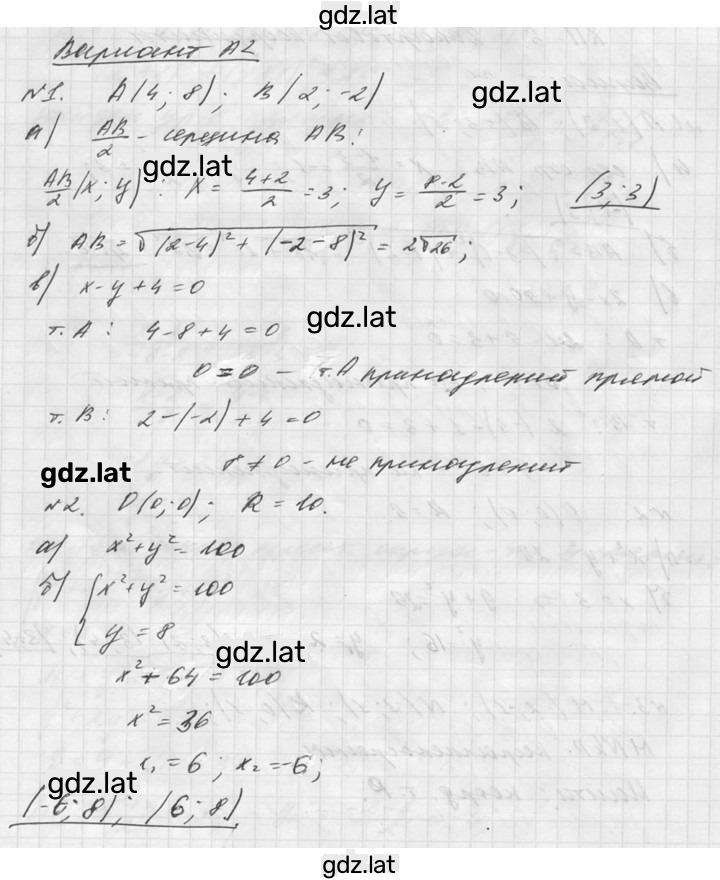 gdz.lat
Вариант А2
№1. A(4; 8); B(2; -2)
gdz.lat
а) AB/2 - середина AB:
gdz.lat
AB/2 (x; y): x = (4+2)/2 = 3; y = (8-2)/2 = 3; (3; 3)
б) AB = √((2-4)² + (-2-8)²) = 2√26;
в) x-y+4=0
gdz.lat
т. A: 4-8+4=0
0=0 - т.A принадлежит прямой
т. B: 2-(-2)+4=0
8≠0 - не принадлежит
gdz.lat
№2. O(0; 0); R=10.
а) x²+y²=100
б) { x²+y²=100
y=8
gdz.lat
x²+64=100
x²=36
x₁=6; x₂=-6;
gdz.lat
(-6; 8); (6; 8)
gdz.lat